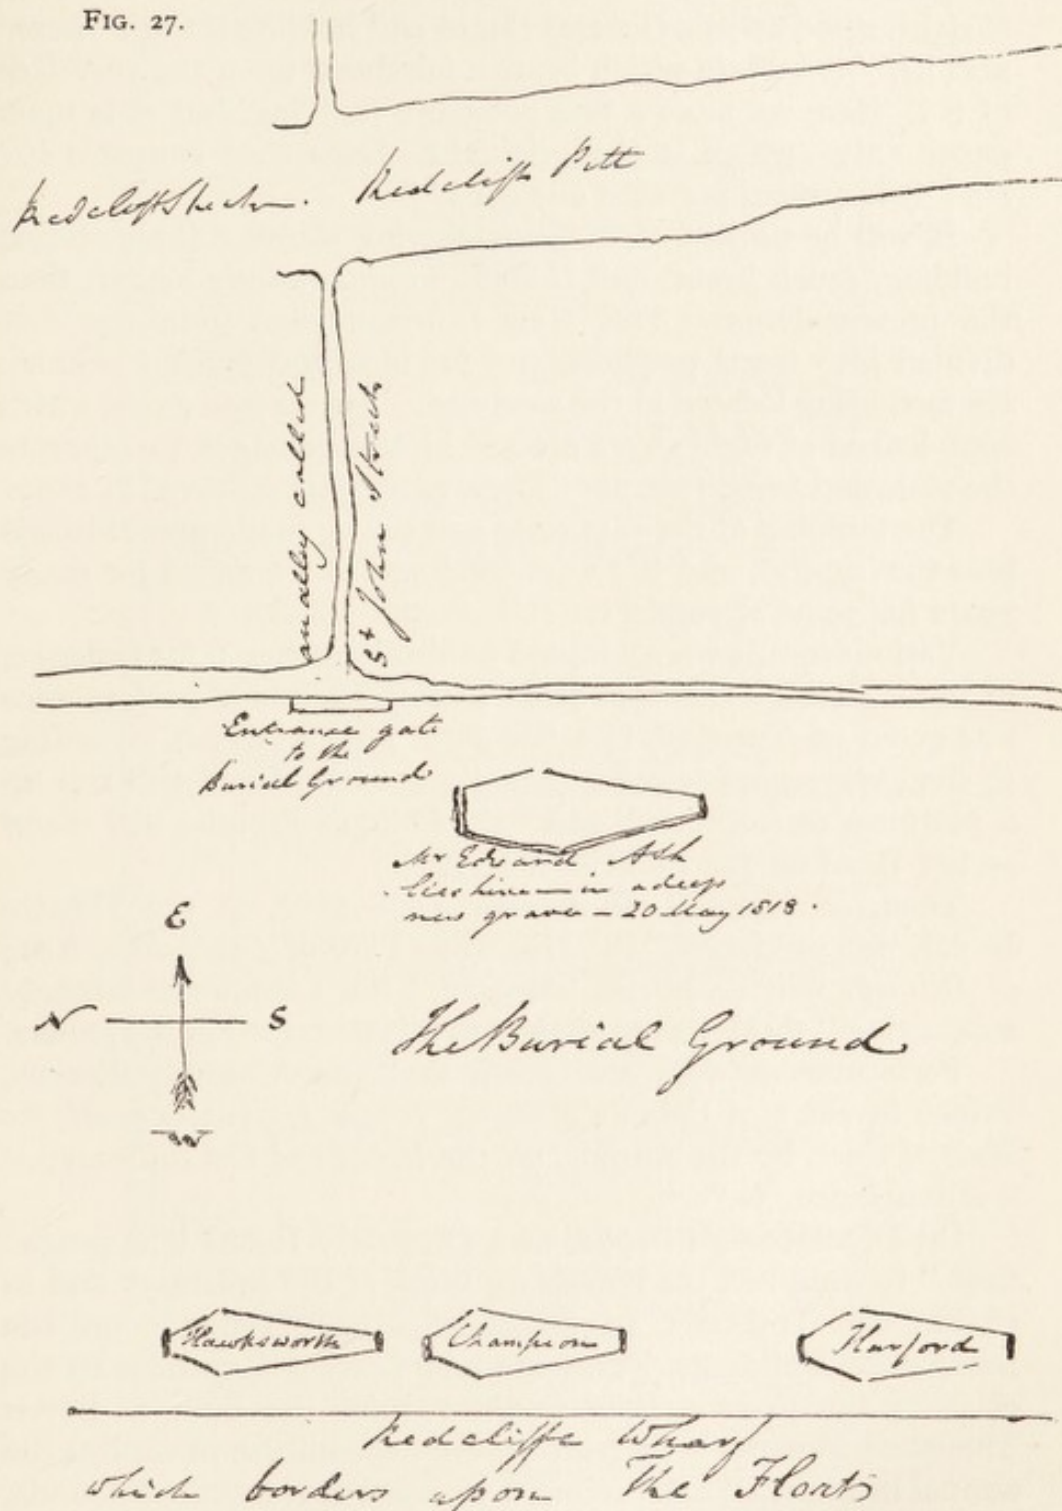 FIG. 27.
Redcliff Street. Redcliff Pitt
an alley called
St John Street
Entrance gate
to the
Burial Ground
Mr Edward Ash
lies here — in a deep
new grave — 20 May 1818.
E
N S
W
The Burial Ground
Hawksworth Champion Harford
Redcliffe Wharf
which borders upon The Float